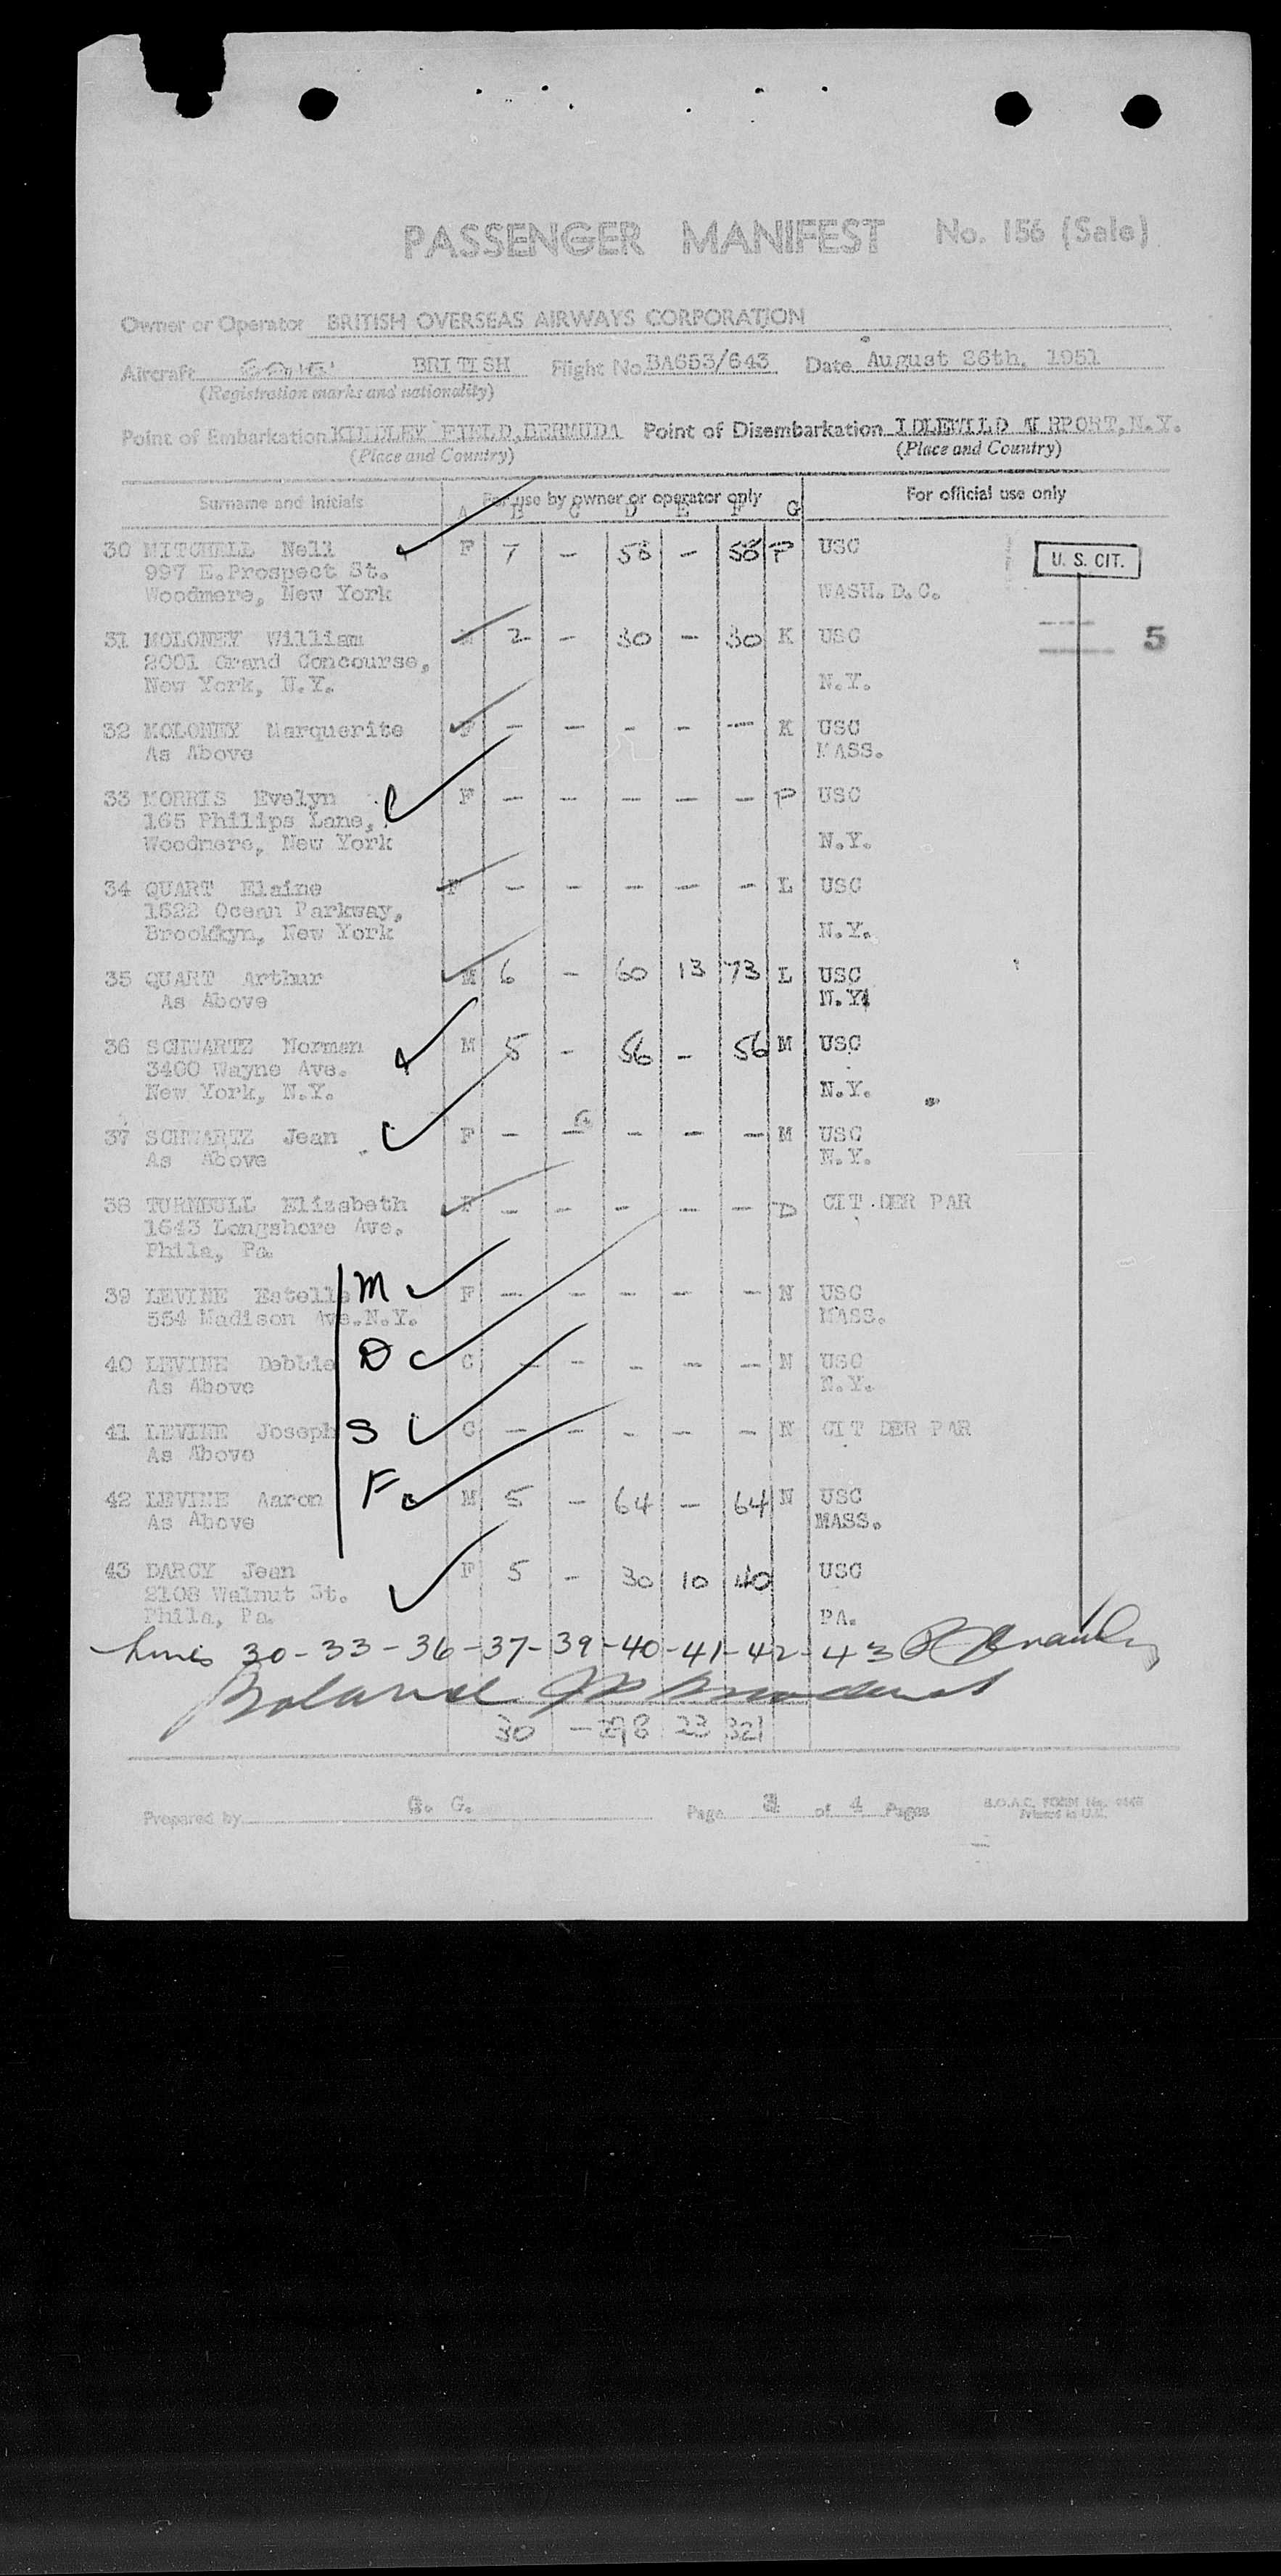 PASSENGER MANIFEST No. 156 (Sale)
Owner or Operator BRITISH OVERSEAS AIRWAYS CORPORATION
Aircraft BRITISH Flight No. BA653/643 Date August 26th, 1951
(Registration marks and nationality)
Point of Embarkation KINDLEY FIELD, BERMUDA Point of Disembarkation IDLEWILD AIRPORT, N.Y.
(Place and Country) (Place and Country)
Surname and Initials For use by owner or operator only For official use only
A B C D E F G
30 MITCHELL Nell F 7 - 58 - 58 P USC U. S. CIT.
997 E.Prospect St.
Woodmere, New York WASH. D.C.
31 MOLONEY William M 2 - 30 - 30 K USC 5
2001 Grand Concourse,
New York, N.Y. N.Y.
32 MOLONEY Marguerite F - - - - - K USC
As Above MASS.
33 MORRIS Evelyn F - - - - - P USC
165 Philips Lane,
Woodmere, New York N.Y.
34 QUART Elaine F - - - - - L USC
1622 Ocean Parkway,
Brookkyn, New York N.Y.
35 QUART Arthur M 6 - 60 13 73 L USC
As Above N.Y.
36 SCHWARTZ Norman M 5 - 56 - 56 M USC
3400 Wayne Ave.
New York, N.Y. N.Y.
37 SCHWARTZ Jean F - - - - - M USC
As Above N.Y.
38 TURNBULL Elizabeth F - - - - - D CIT DER PAR
1643 Longshore Ave.
Phila, Pa.
39 LEVINE Estelle M F - - - - - N USC
554 Madison Ave.N.Y. MASS.
40 LEVINE Debbie D C - - - - - N USC
As Above N.Y.
41 LEVINE Joseph S C - - - - - N CIT DER PAR
As Above
42 LEVINE Aaron F M 5 - 64 - 64 N USC
As Above MASS.
43 DARCY Jean F 5 - 30 10 40 USC
2108 Walnut St.
Phila, Pa. PA.
Lines 30-33-36-37-39-40-41-42-43
30 - 298 23 321
Prepared by G. G. Page 3 of 4 Pages B.O.A.C. FORM No.
Printed in U.K.